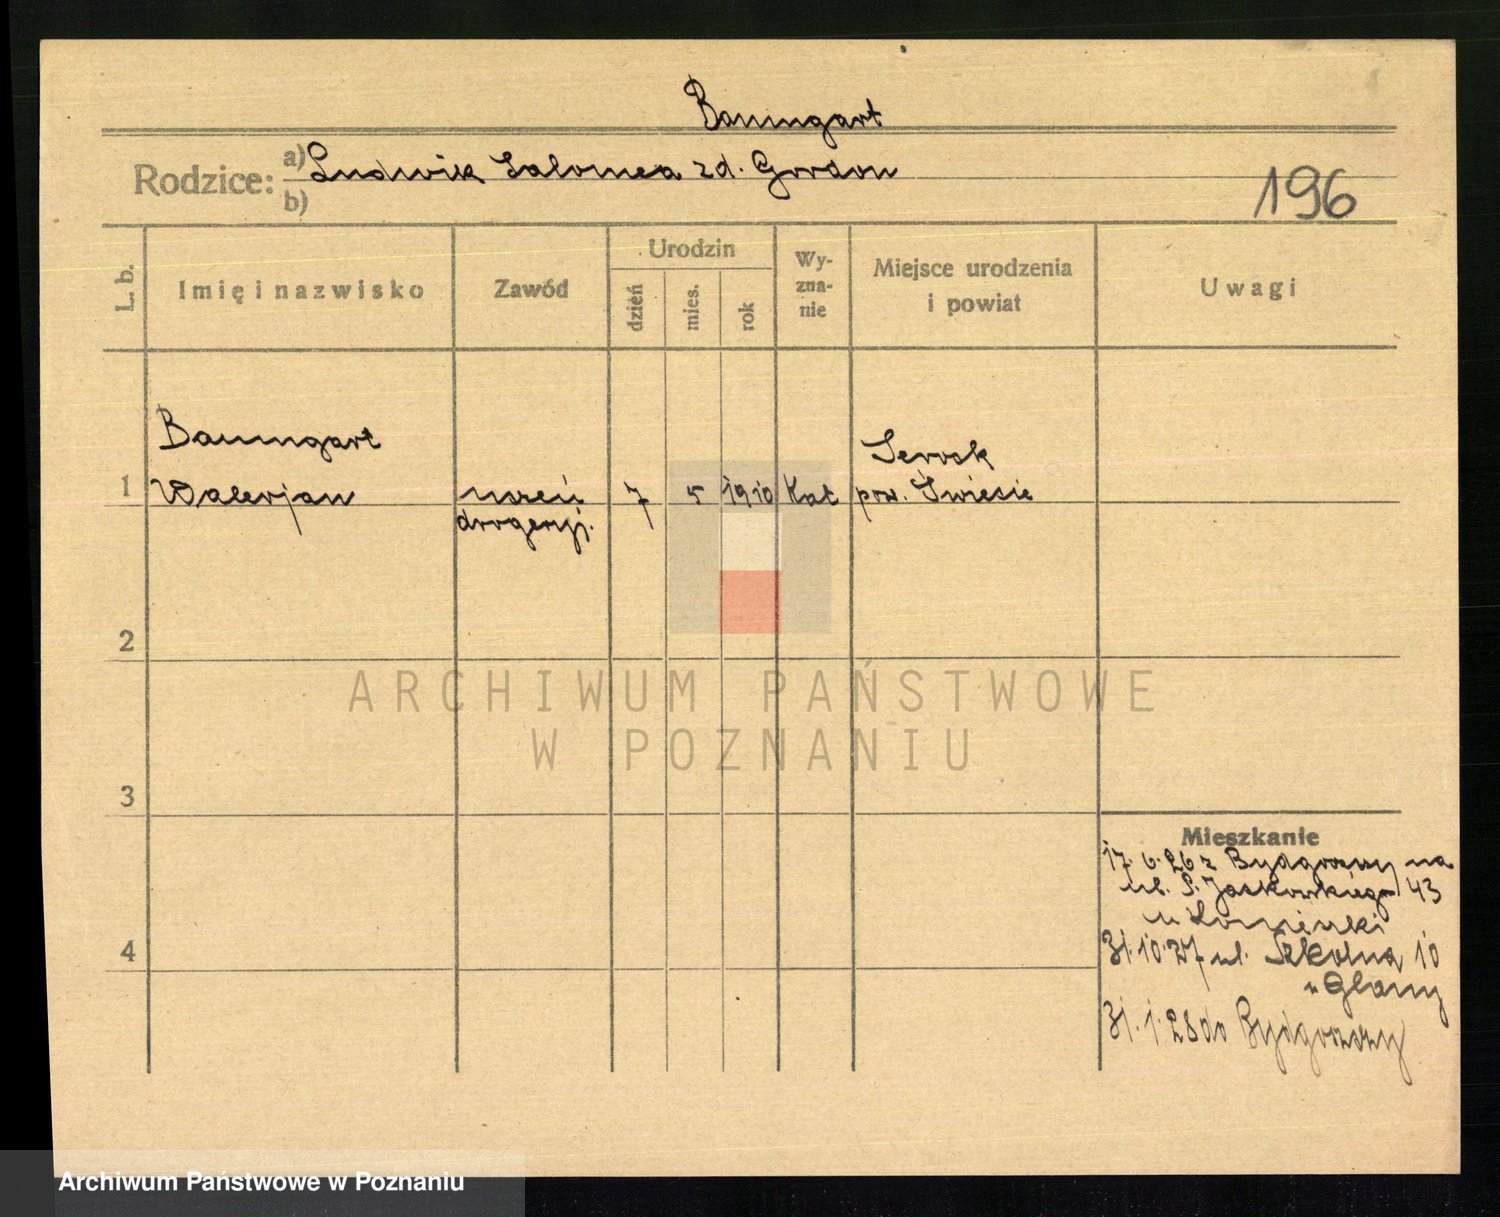 Baumgart
Rodzice: a) Ludwik Salomea zd. Gordon
b)
196
L. b.
Imię i nazwisko
Zawód
Urodzin
dzień
mies.
rok
Wy-
zna-
nie
Miejsce urodzenia
i powiat
Uwagi
Baumgart
Serock
1 Walerjan uczeń 7 5 1910 Kat pow. Świecie
drogeryj.
2
3
4
Mieszkanie
17.6.26 z Bydgoszczy na
ul. S. Jackowskiego 43
u
31.10.27 ul. Szkolna 10
u
31.1.28 do Bydgoszczy
ARCHIWUM PAŃSTWOWE
W POZNANIU
Archiwum Państwowe w Poznaniu